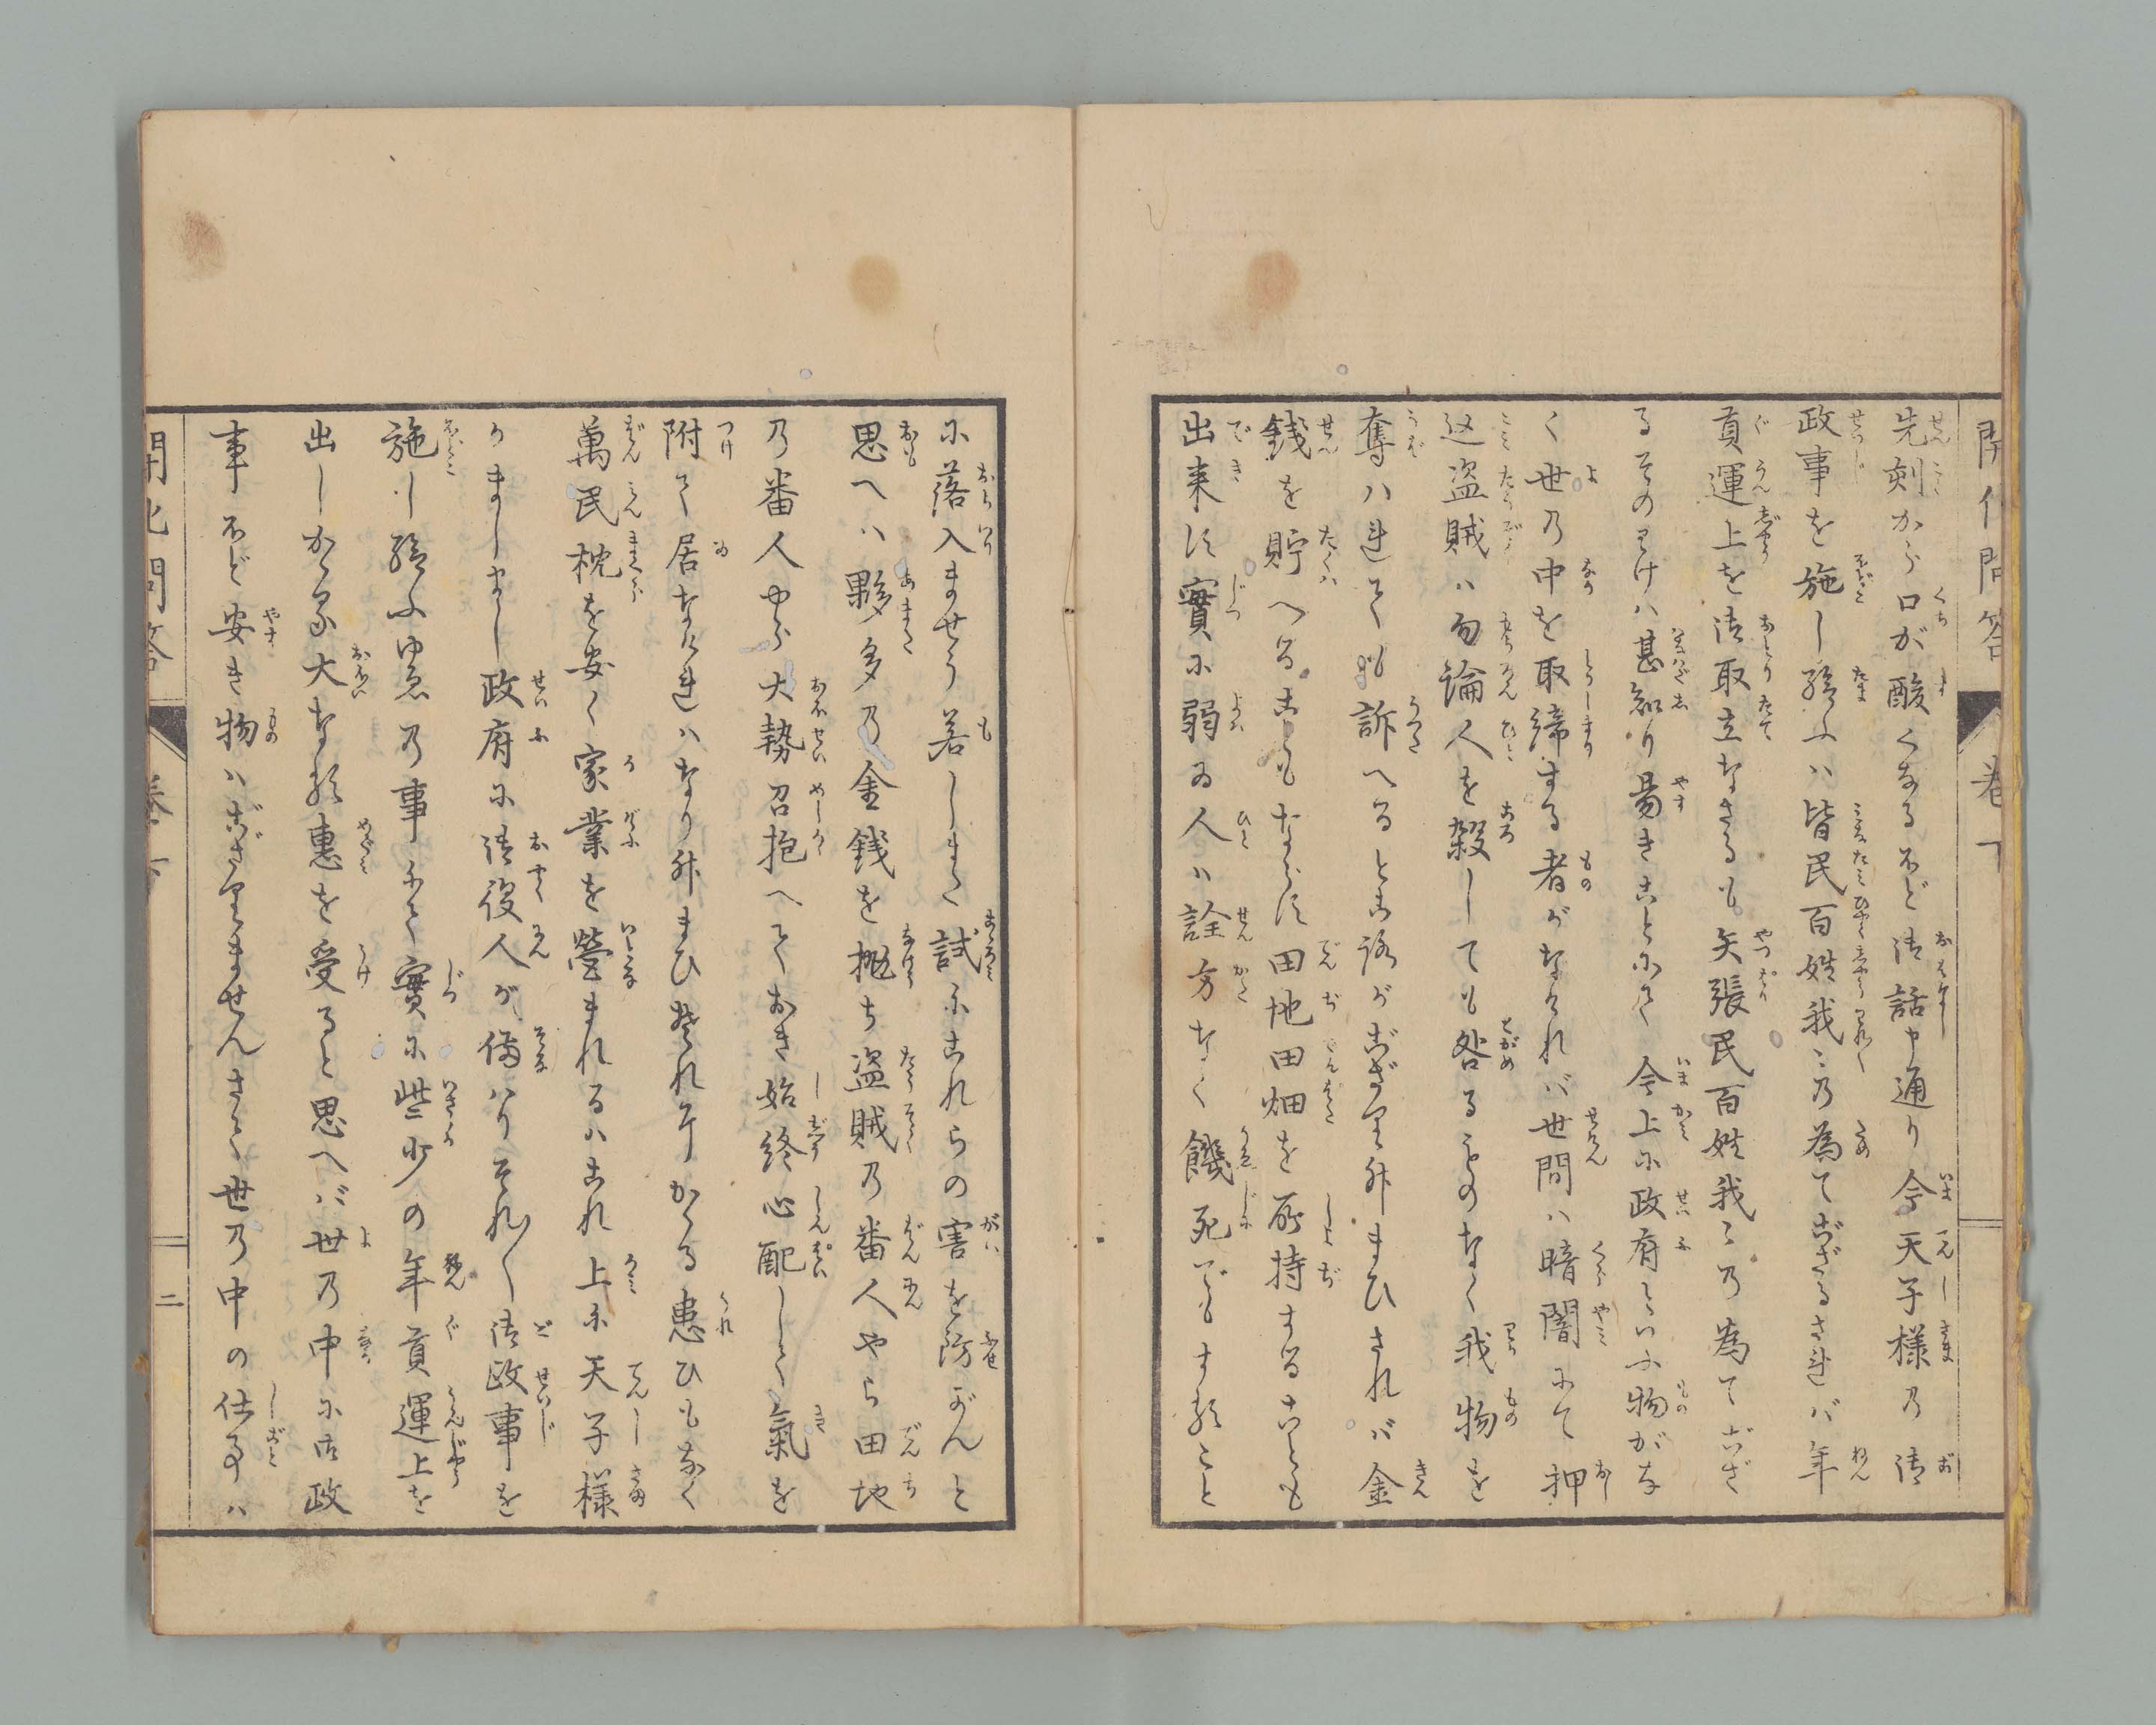 開化問答
巻下
先刻から口が酸くなるほど御話申通り今天子様の御
政事を施し給ふハ皆民百姓我々の為でござるされバ年
貢運上を御取立なさるも矢張民百姓我々の為でござ
るそのわけハ甚知り易きことにて今上に政府といふ物がな
く世の中を取締する者がなけれバ世間ハ暗闇にて押
込盗賊ハ勿論人を殺しても咎るものなく我物を
奪ハれても訴へるところがござりませぬされバ金
銭を貯へることもならず田地田畑を所持することも
出来ず實に弱ゐ人ハ詮方なく饑死でもすること
に落入ませう若しまた試にこれらの害を防がんと
思へハ夥多の金銭を抛ち盗賊の番人やら田地
の番人やら大勢召抱へておき始終心配して氣を
附て居なければハなり升まひ然れ共かゝる患ひもなく
萬民枕を安く家業を營まれるハこれ上に天子様
がましまし政府に御役人が備ハりそれ〳〵御政事を
施し給ふゆゑの事にて實に些少の年貢運上を
出しかゝる大なる惠を受ると思へバ世の中に御政
事ほど安き物ハござりませんさて世の中の仕事ハ
開化問答
巻下
二